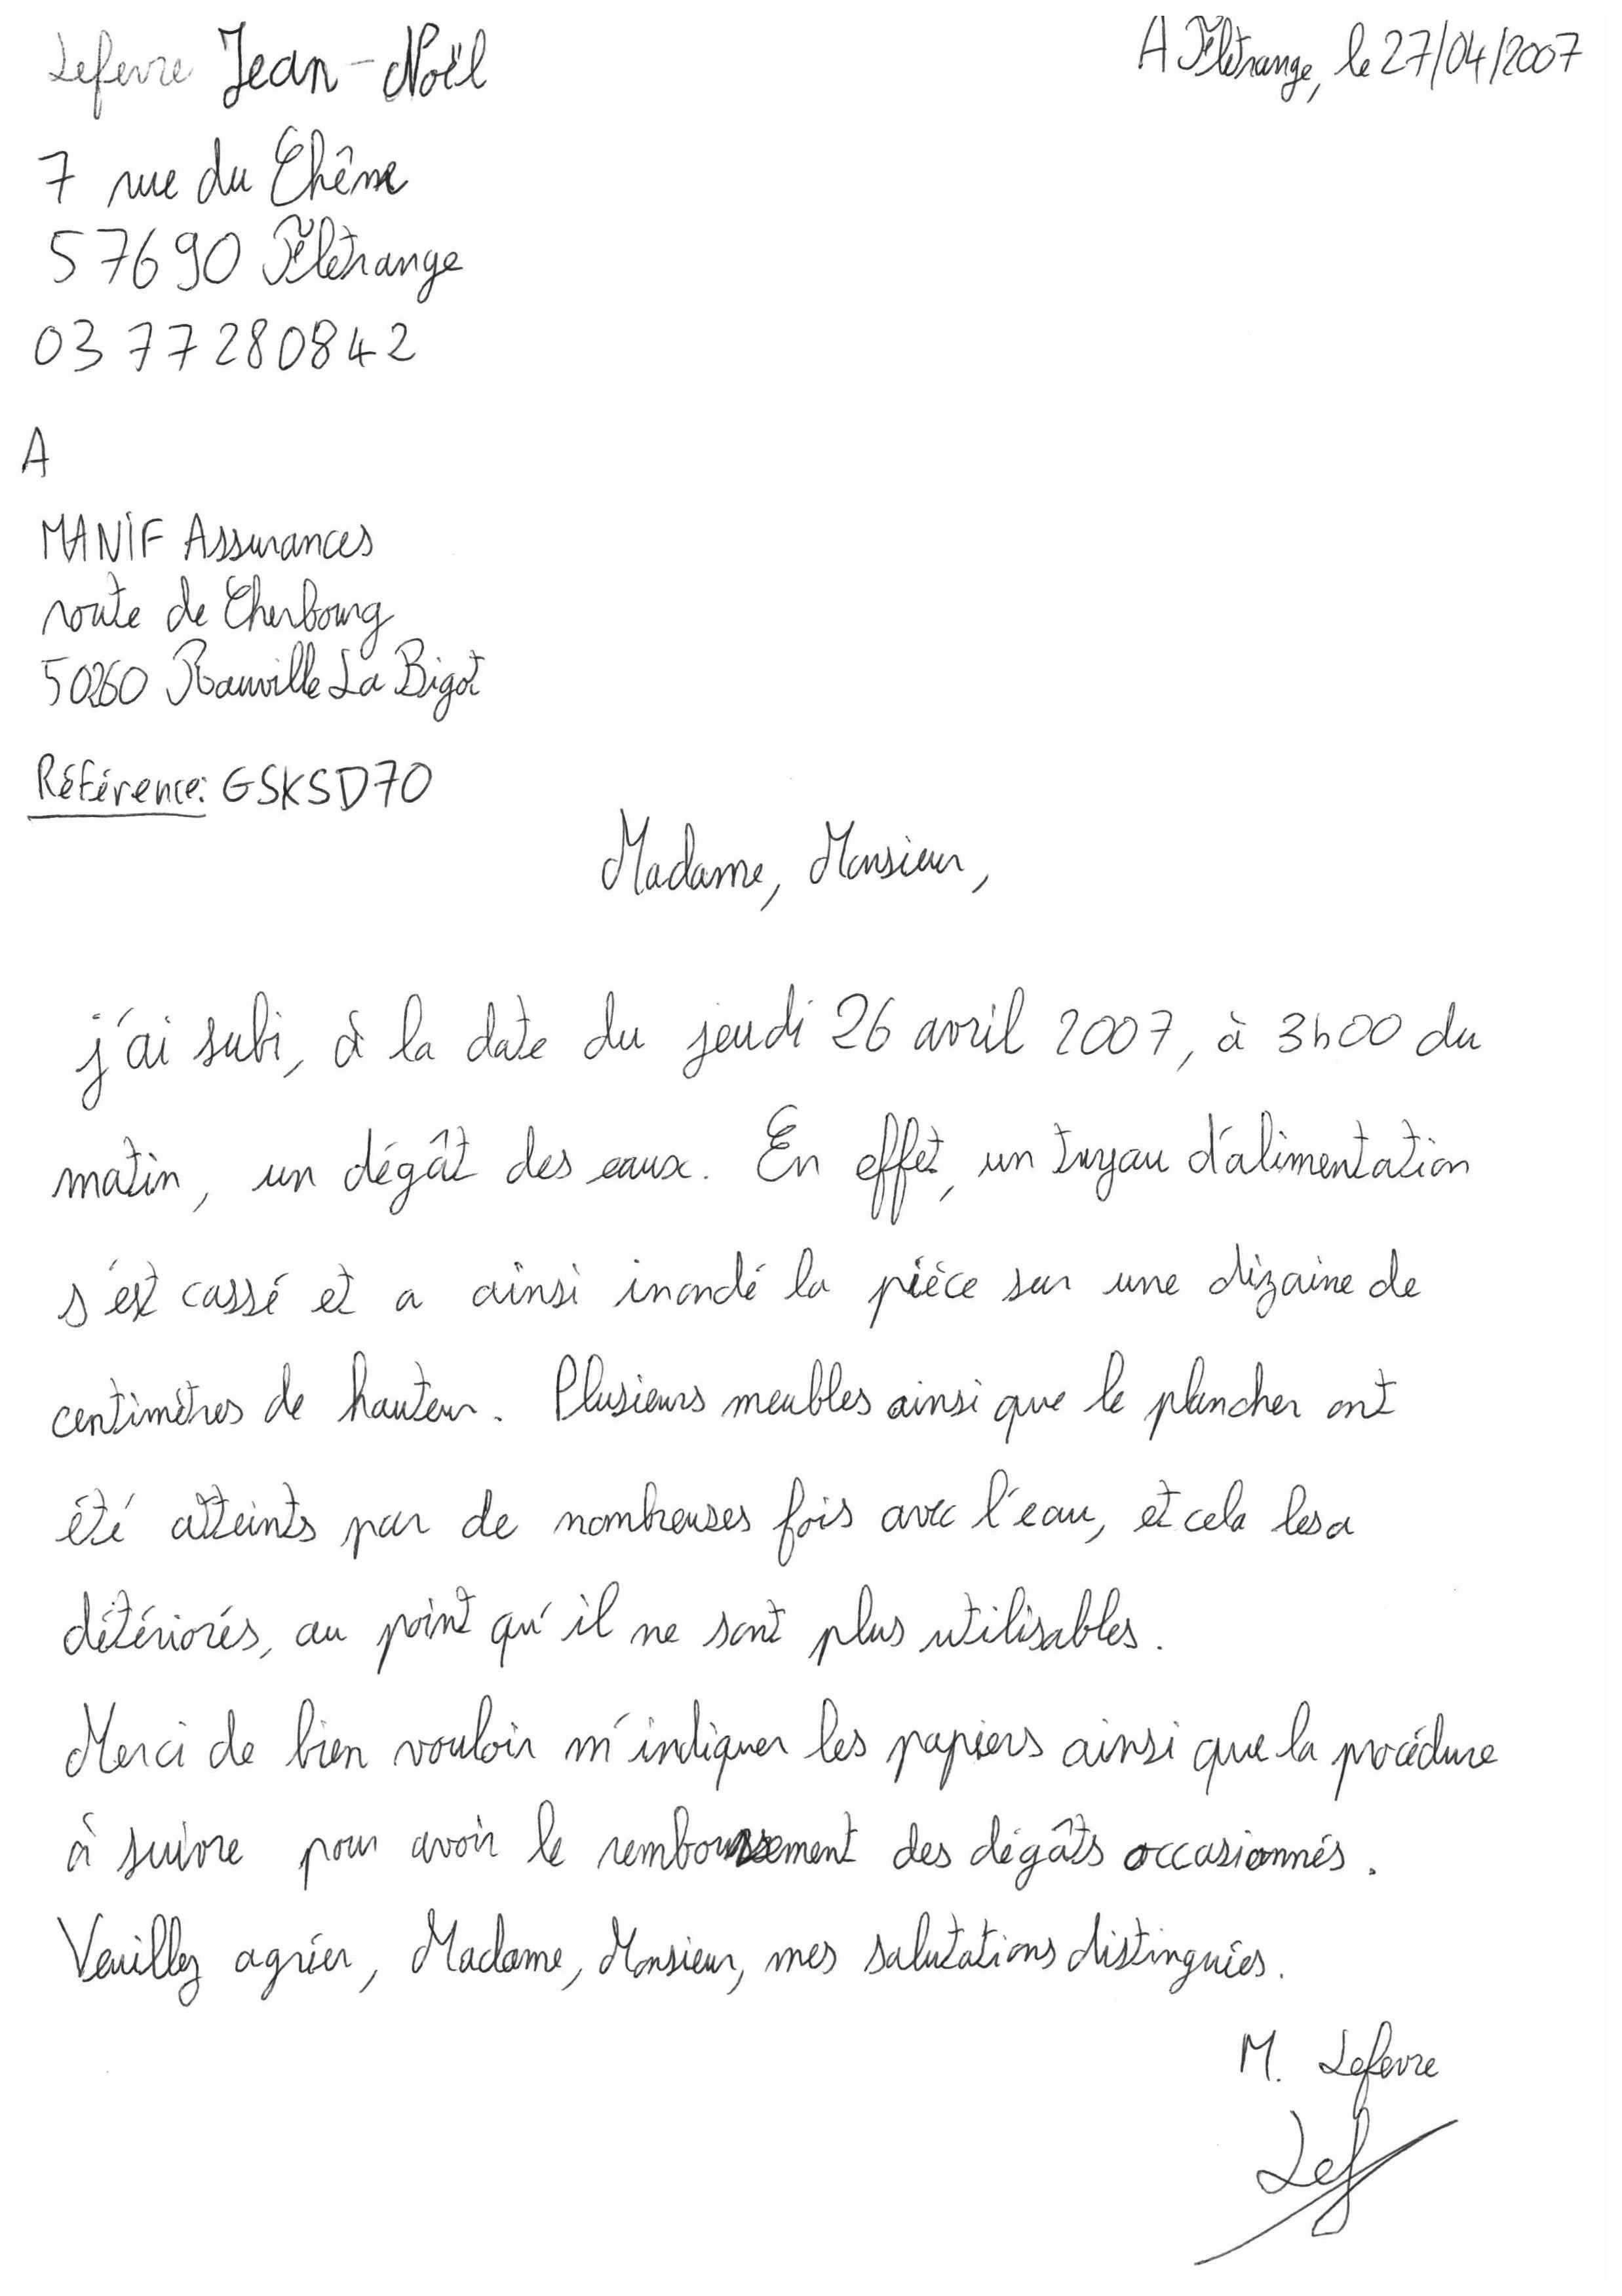 Lefevre Jean-Noël
A Flétrange, le 27/04/2007
7 rue du Chêne
57690 Flétrange
03 77 28 08 42
A
MANIF Assurances
route de Cherbourg
50260 Rauville La Bigot
Référence: GSKSD70
Madame, Monsieur,
j'ai subi, à la date du jeudi 26 avril 2007, à 3h00 du
matin, un dégât des eaux. En effet, un tuyau d'alimentation
s'est cassé et a ainsi inondé la pièce sur une dizaine de
centimètres de hauteur. Plusieurs meubles ainsi que le plancher ont
été atteints par de nombreuses fois avec l'eau, et cela les a
détériorés, au point qu'il ne sont plus utilisables.
Merci de bien vouloir m'indiquer les papiers ainsi que la procédure
à suivre pour avoir le remboursement des dégâts occasionnés.
Veuillez agréer, Madame, Monsieur, mes salutations distinguées.
M. Lefevre
Lef